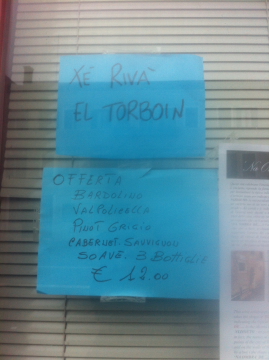 XÉ RIVÀ
EL TORBOIN
OFFERTA
BARDOLINO
VALPOLICELLA
PINOT GRIGIO
CABERNET. SAUVIGNON
SOAVE. 3 BOTTIGLIE
€ 12.00